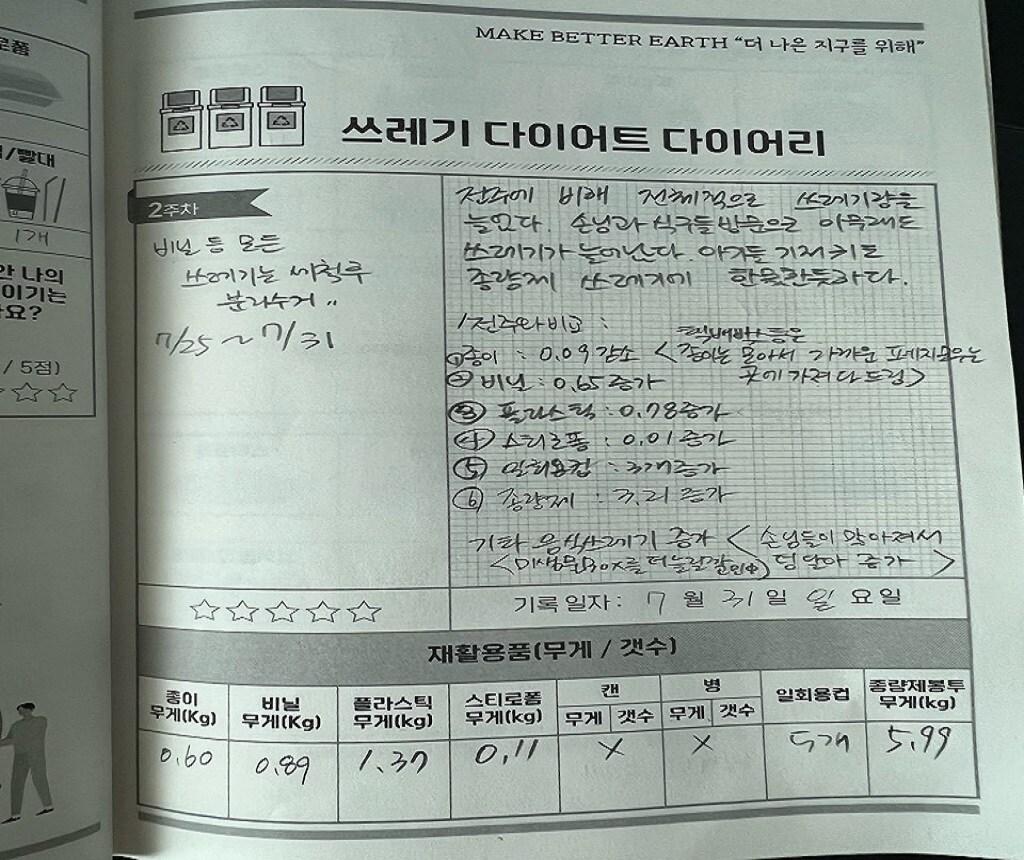 MAKE BETTER EARTH "더 나은 지구를 위해"
쓰레기 다이어트 다이어리
2주차
비닐 등 모든
쓰레기는 세척후
분리수거 "
7/25 ~ 7/31
전주에 비해 전체적으로 쓰레기량은
늘었다. 손님과 식구들방문으로 아무래도
쓰레기가 늘어난다. 아가들 기저귀도
종량제 쓰레기에 한몫한듯하다.
/전주와비교 :
택배박스등은
① 종이 : 0.09 감소 < 종이는 모아서 가까운 폐지모우는
곳에 가져다드림 >
② 비닐 : 0.65 증가
③ 플라스틱 : 0.78증가
④ 스티로폼 : 0.01 증가
⑤ 일회용컵 : 3개증가
⑥ 종량제 : 3.21 증가
기타 음식쓰레기 증가 < 손님들이 많아져서
<미생물Box를 더늘릴깔 덩달아 증가 >
기록 일자 : 7 월 31 일 일 요일
재활용품(무게 / 갯수)
종이 무게(Kg) 비닐 무게(Kg) 플라스틱 무게(kg) 스티로폼 무게(kg) 캔 무게 갯수 병 무게 갯수 일회용컵 종량제봉투 무게(kg)
0.60 0.89 1.37 0.11 X X 5개 5.99
로폼
/빨대
1개
안 나의
이기는
요?
/ 5점)